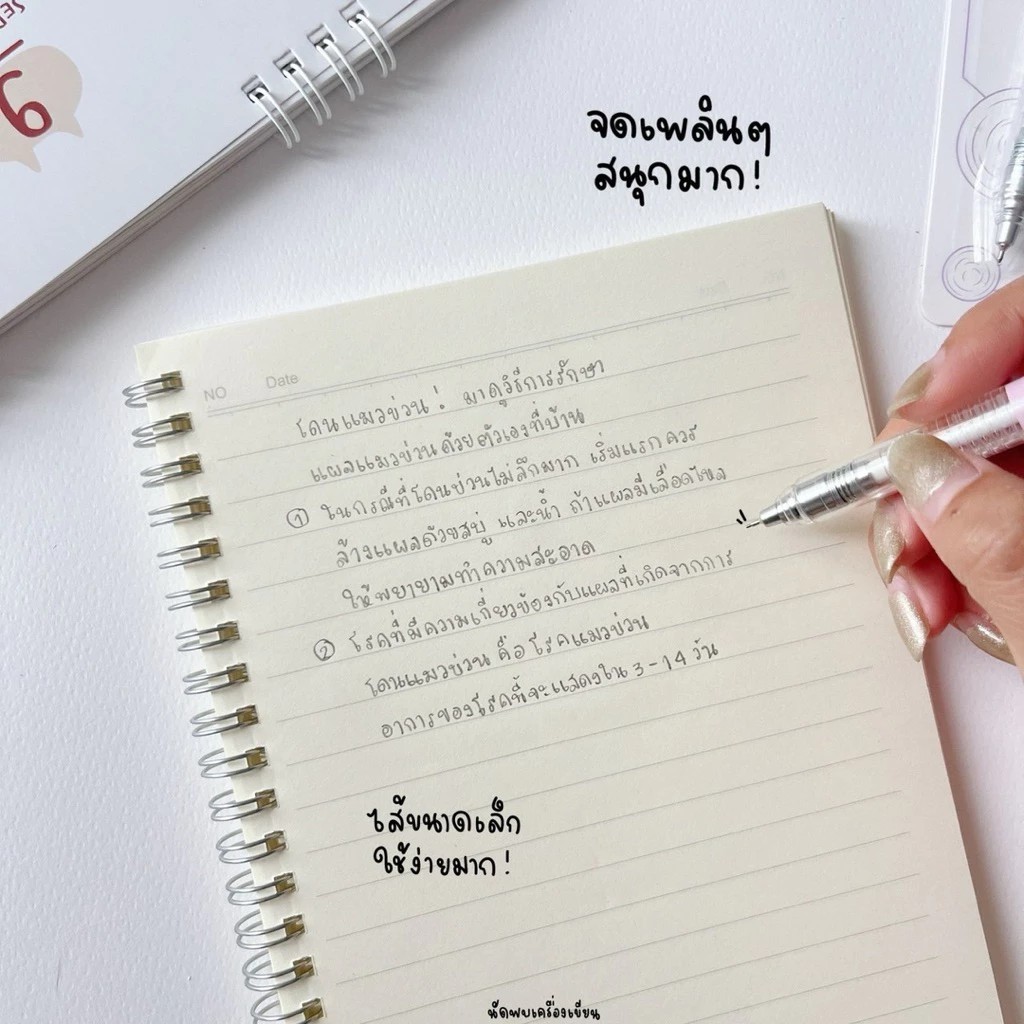 SEP
6
จดเพลินๆ
สนุกมาก!
NO Date
โดนแมวข่วน! มาดูวิธีการรักษา
แผลแมวข่วนด้วยตัวเองที่บ้าน
① ในกรณีที่โดนข่วนไม่ลึกมาก เริ่มแรกควร
ล้างแผลด้วยสบู่ และน้ำ ถ้าแผลมีเลือดไหล
ให้พยายามทำความสะอาด
② โรคที่มีความเกี่ยวข้องกับแผลที่เกิดจากการ
โดนแมวข่วน คือ โรคแมวข่วน
อาการของโรคนี้จะแสดงใน 3-14 วัน
ไส้ขนาดเล็ก
ใช้ง่ายมาก!
นัดพบเครื่องเขียน